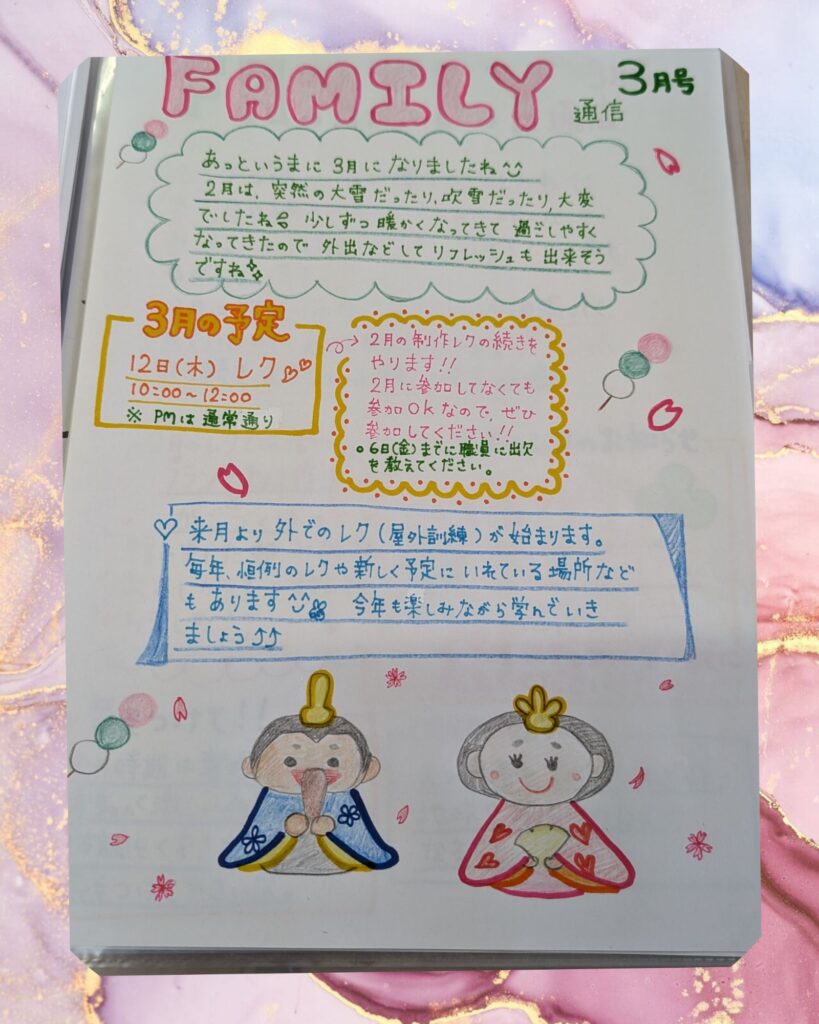 FAMILY 通信 3月号
あっというまに 3月に なりましたね^^
2月は、突然の大雪だったり、吹雪だったり、大変
でしたね 少しずつ 暖かくなってきて 過ごしやすく
なってきたので 外出などして リフレッシュも 出来そう
ですね
3月の予定
12日(木) レク
10:00〜12:00
※ PMは 通常通り
2月の制作レクの続きを
やります!!
2月に参加してなくても
参加OKなので、ぜひ
参加してください!!
○6日(金)までに職員に出欠
を教えてください。
♡ 来月より 外でのレク(屋外訓練)が 始まります。
毎年、恒例のレクや新しく予定に いれている 場所など
も あります^^ 今年も楽しみながら学んでいき
ましょう♪♪